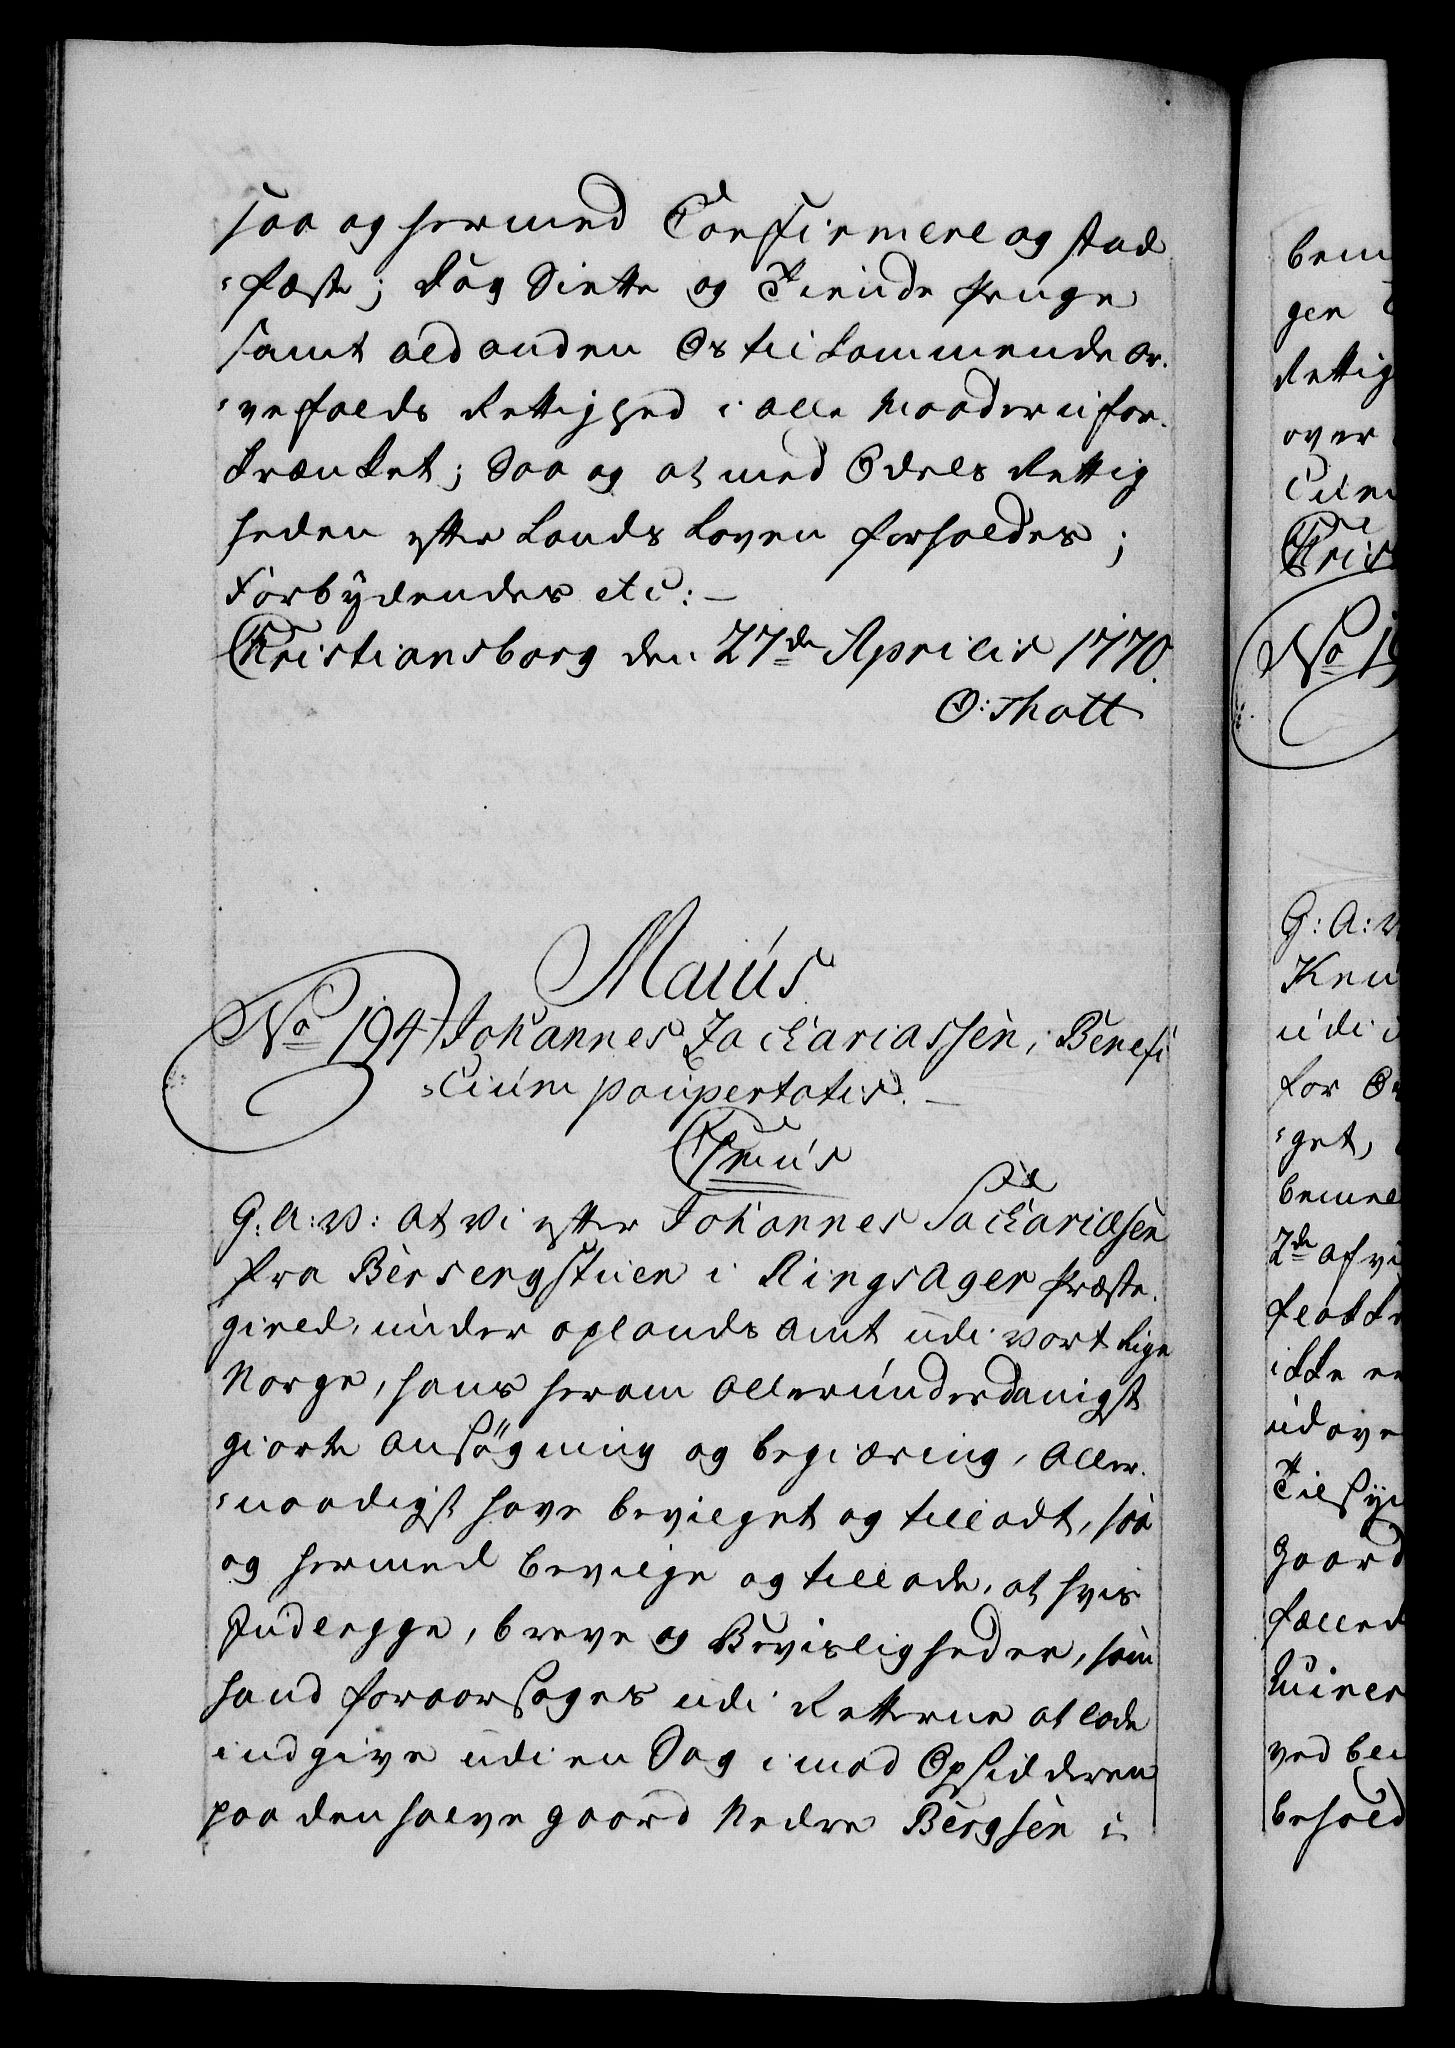 saa og hermed Confirmere og stad
-fæste; dog Siette og Tiende Penge
samt ald anden Os tilkommende Ar-
-vefalds Rettighed i alle Maader ufor-
krænket; Saa og at med Odels Rettig
heden efter Lands Loven forholdes;
Forbydendes etc:-
Christiansborg den 27de Aprilis 1770.
O: Thott
Maiús
No 194 Johannes Zachariassen, Benefi
-cium paupertatis.-
Thús
G: A: V: At Vi efter Johannes Sachariæsen
fra Bersengstuen i Ringsager Præste-
gield, under Oplands Amt udi Vort Rige
Norge, hans herom allerunderdanigst
giorte Ansøgning og begiæring, Aller-
-naadigst have bevilget og tilladt, saa
og hermed bevilge og tillade, at hvis
Indlegge, breve og Bevisligheder, som
hand foraarsages udi Retterne at lade
indgive udi en Sag imod Opsidderen
paa den halve gaard Nedre Bergsen i
bem
gen
Rettig
over
Chris
No 19
G: A: V
Knu
udi
for
-get,
bemel
2de af vi
ikke
udove
Tilsyn
gaard
ved
behold